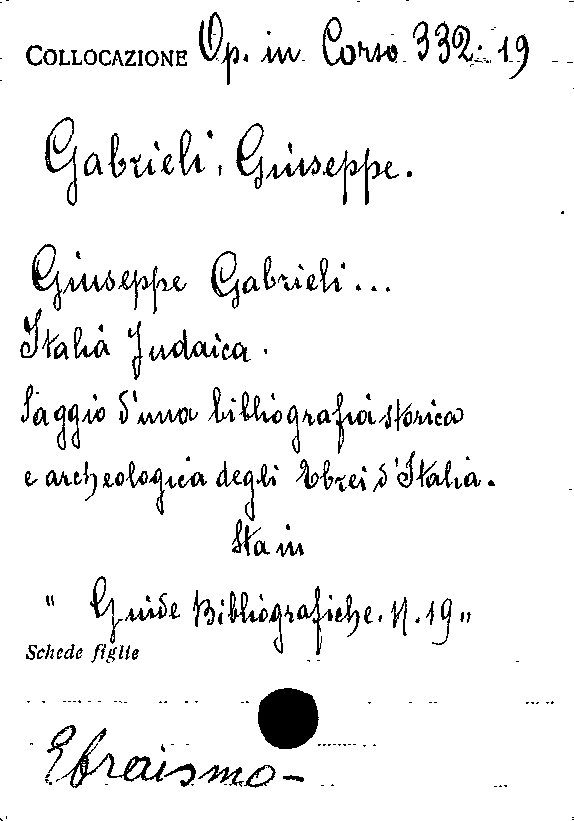 COLLOCAZIONE Op. in Corso 332.19
Gabrieli, Giuseppe.
Giuseppe Gabrieli...
Italia Judaica.
Saggio d'una bibliografia storica
e archeologica degli Ebrei d'Italia.
Sta in
"Guide Bibliografiche. N. 19"
Schede figlie
Ebraismo-